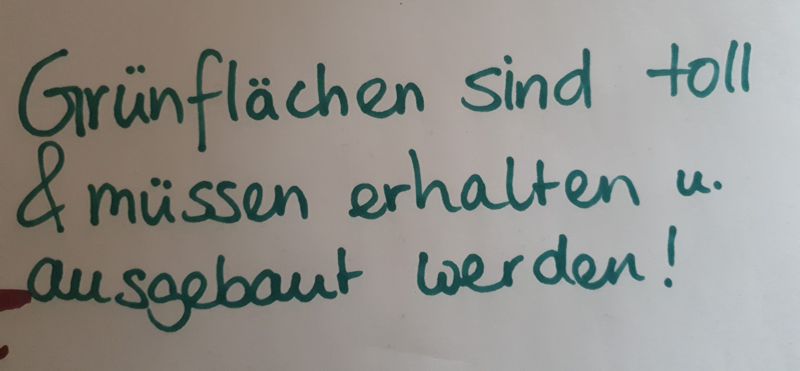 Grünflächen sind toll
& müssen erhalten u.
ausgebaut werden!